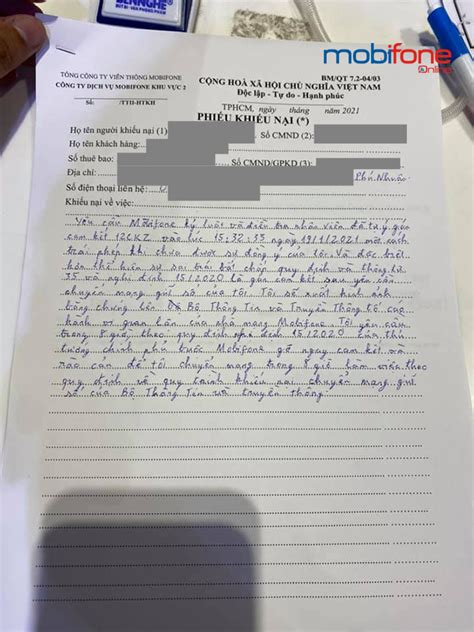 BENNGHE
mobifone
Online
BM/QT 7.2-04/03
TỔNG CÔNG TY VIỄN THÔNG MOBIFONE
CÔNG TY DỊCH VỤ MOBIFONE KHU VỰC 2
Số: /TTII-HTKH
CỘNG HOÀ XÃ HỘI CHỦ NGHĨA VIỆT NAM
Độc lập - Tự do - Hạnh phúc
TPHCM, ngày tháng năm 2021
PHIẾU KHIẾU NẠI (*)
Họ tên người khiếu nại (1) Số CMND (2):
Họ tên khách hàng:
Số thuê bao: Số CMND/GPKD (3)
Địa chỉ: Phú Nhuận
Số điện thoại liên hệ:
Khiếu nại về việc:
Yêu cầu Mobifone kỷ luật và điều tra nhân viên đã tự ý gán
cam kết 12CKZ vào lúc 15:32:35 ngày 19/1/2021 một cách
trái phép khi chưa được sự đồng ý của tôi. Và đặc biệt
hơn thể hiện sự sai trái bất chấp quy định và thông tư
35 và nghị định 15/2020 là gán cam kết sau yêu cầu
chuyển mạng giữ số của tôi. Tôi sẽ xuất hình ảnh
bằng chứng lên Bộ Thông Tin và Truyền Thông tố cáo
hành vi của nhà mạng Mobifone. Tôi yêu cầu
trong 8 giờ theo quy định 15/2020 của thủ
tướng chính phủ buộc Mobifone gỡ ngay cam kết và
rào cản để tôi chuyển mạng trong 8 giờ làm việc theo
quy định về quy trình khiếu nại chuyển mạng giữ
số của Bộ Thông Tin và truyền thông